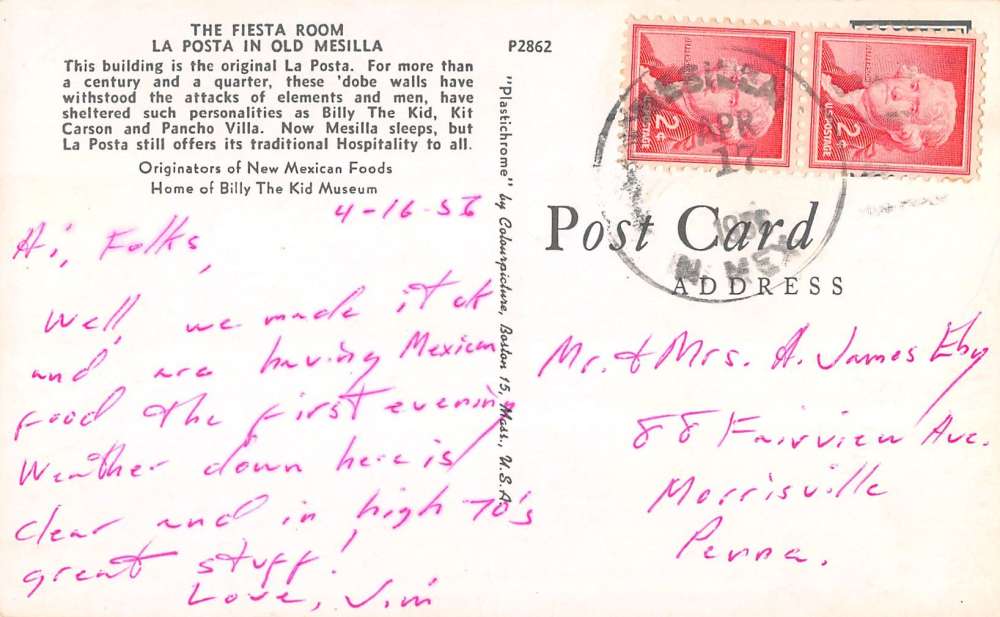 THE FIESTA ROOM
LA POSTA IN OLD MESILLA
This building is the original La Posta. For more than
a century and a quarter, these 'dobe walls have
withstood the attacks of elements and men, have
sheltered such personalities as Billy The Kid, Kit
Carson and Pancho Villa. Now Mesilla sleeps, but
La Posta still offers its traditional Hospitality to all.
Originators of New Mexican Foods
Home of Billy The Kid Museum
4-16-56
Hi, Folks,
Well, we made it ok
and are having Mexican
food the first evening
Weather down here is
clear and in high 70's
great stuff!
Love, Jim
P2862
"Plastichrome" by Colourpicture, Boston 15, Mass., U.S.A.
2¢
U.S. POSTAGE
2¢
U.S. POSTAGE
MESILLA
APR
17
N. MEX
Post Card
ADDRESS
Mr. & Mrs. A. James Eby
88 Fairview Ave.
Morrisville
Penna.